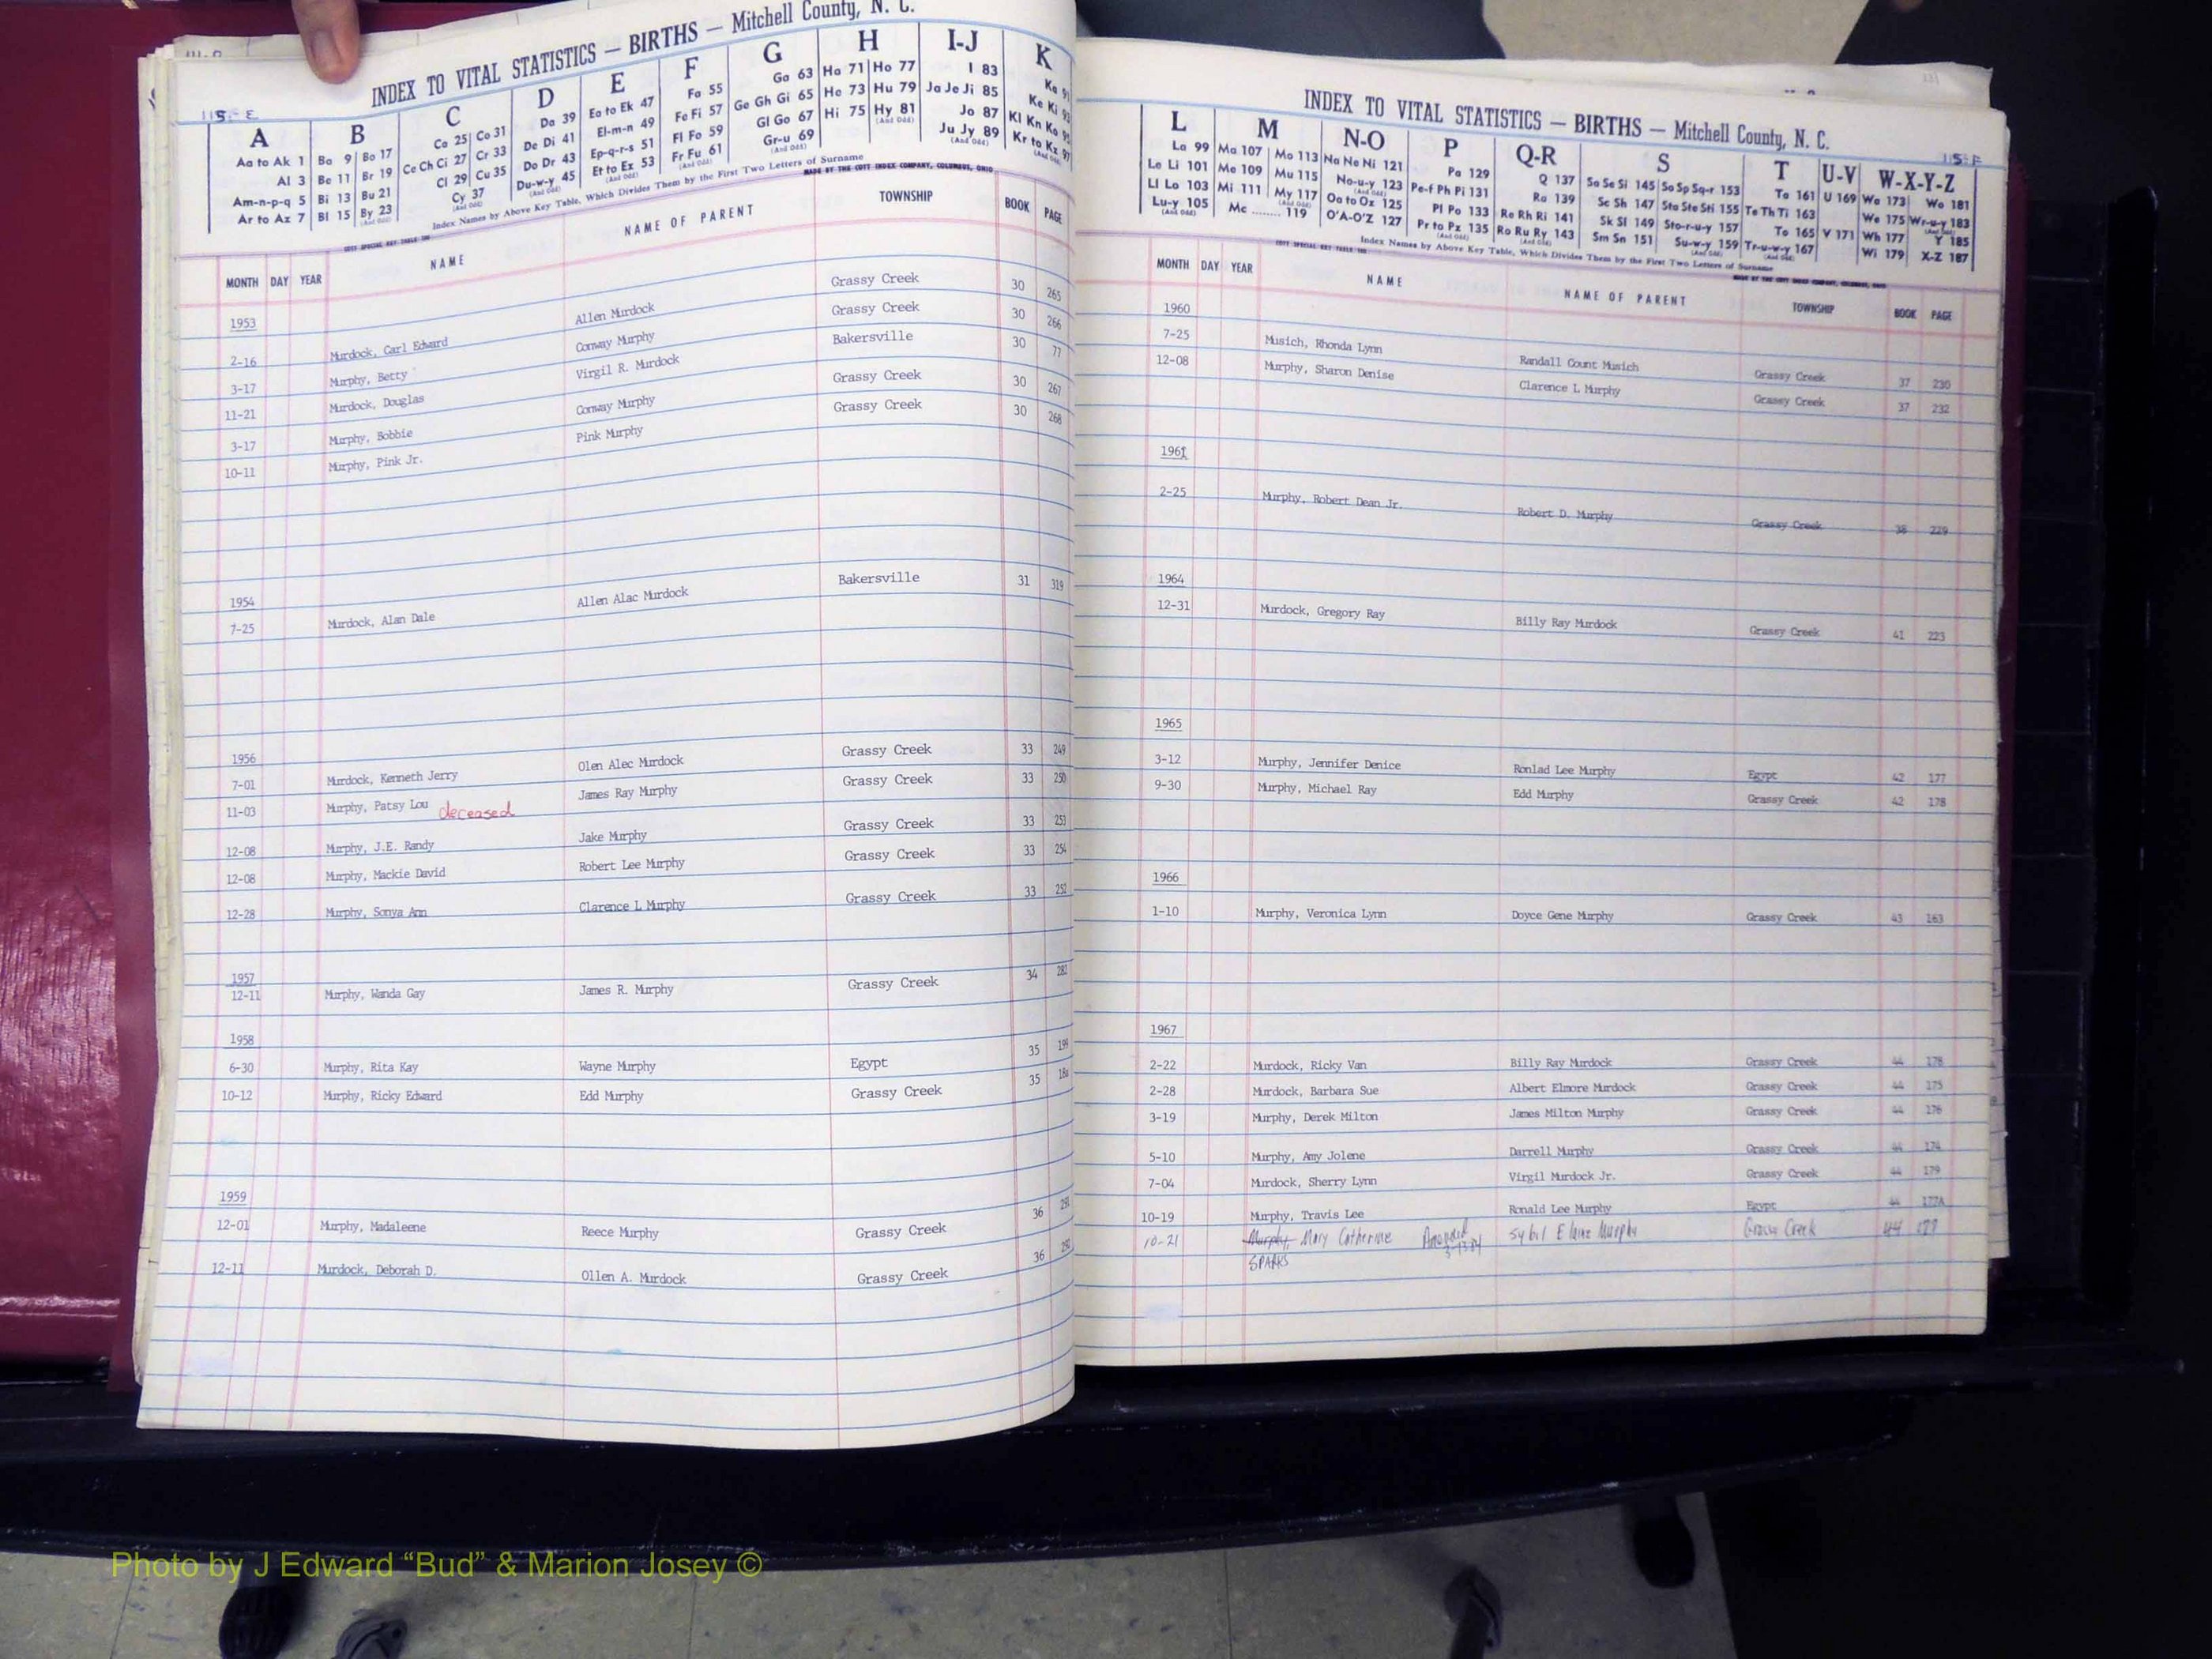 INDEX TO VITAL STATISTICS — BIRTHS — Mitchell County, N. C.
115-E
A B C D E F G H I-J K
Aa to Ak 1 Ba 9 Bo 17 Ca 25 Co 31 Da 39 Ea to Ek 47 Fa 55 Ga 63 Ha 71 Ho 77 I 83
Al 3 Be 11 Br 19 Ce Ch Ci 27 Cr 33 De Di 41 El-m-n 49 Fe Fi 57 Ge Gh Gi 65 He 73 Hu 79 Ja Je Ji 85
Am-n-p-q 5 Bi 13 Bu 21 Cl 29 Cu 35 Do Dr 43 Ep-q-r-s 51 Fl Fo 59 Gl Go 67 Hi 75 Hy 81 Jo 87
Ar to Az 7 Bl 15 By 23 Cy 37 Du-w-y 45 Et to Ez 53 Fr Fu 61 Gr-u 69 Ju Jy 89
Index Names by Above Key Table, Which Divides Them by the First Two Letters of Surname
MADE BY THE COTT INDEX COMPANY, COLUMBUS, OHIO
MONTH DAY YEAR NAME NAME OF PARENT TOWNSHIP BOOK PAGE
1953
2-16 Murdock, Carl Edward Allen Murdock Grassy Creek 30 265
3-17 Murphy, Betty Conway Murphy Grassy Creek 30 266
11-21 Murdock, Douglas Virgil R. Murdock Bakersville 30 77
3-17 Murphy, Bobbie Conway Murphy Grassy Creek 30 267
10-11 Murphy, Pink Jr. Pink Murphy Grassy Creek 30 268
1954
7-25 Murdock, Alan Dale Allen Alac Murdock Bakersville 31 319
1956
7-01 Murdock, Kenneth Jerry Olen Alec Murdock Grassy Creek 33 249
11-03 Murphy, Patsy Lou deceased James Ray Murphy Grassy Creek 33 250
12-08 Murphy, J.E. Randy Jake Murphy Grassy Creek 33 253
12-08 Murphy, Mackie David Robert Lee Murphy Grassy Creek 33 254
12-28 Murphy, Sonya Ann Clarence L Murphy Grassy Creek 33 252
1957
12-11 Murphy, Wanda Gay James R. Murphy Grassy Creek 34 282
1958
6-30 Murphy, Rita Kay Wayne Murphy Egypt 35 199
10-12 Murphy, Ricky Edward Edd Murphy Grassy Creek 35
1959
12-01 Murphy, Madaleene Reece Murphy Grassy Creek 36
12-11 Murdock, Deborah D. Ollen A. Murdock Grassy Creek 36
INDEX TO VITAL STATISTICS — BIRTHS — Mitchell County, N. C.
115-F
L M N-O P Q-R S T U-V W-X-Y-Z
La 99 Ma 107 Mo 113 Na Ne Ni 121 Pa 129 Q 137 Sa Se Si 145 So Sp Sq-r 153 Ta 161 U 169 Wa 173 Wo 181
Le Li 101 Me 109 Mu 115 No-u-y 123 Pe-f Ph Pi 131 Ra 139 Sc Sh 147 Sta Ste Sti 155 Te Th Ti 163 We 175 Wr-u-y 183
Ll Lo 103 Mi 111 My 117 Oa to Oz 125 Pl Po 133 Re Rh Ri 141 Sk Sl 149 Sto-r-u-y 157 To 165 V 171 Wh 177 Y 185
Lu-y 105 Mc ........ 119 O'A-O'Z 127 Pr to Pz 135 Ro Ru Ry 143 Sm Sn 151 Su-w-y 159 Tr-u-w-y 167 Wi 179 X-Z 187
Index Names by Above Key Table, Which Divides Them by the First Two Letters of Surname
MADE BY THE COTT INDEX COMPANY, COLUMBUS, OHIO
MONTH DAY YEAR NAME NAME OF PARENT TOWNSHIP BOOK PAGE
1960
7-25 Musich, Rhonda Lynn Randall Count Musich Grassy Creek 37 230
12-08 Murphy, Sharon Denise Clarence L Murphy Grassy Creek 37 232
1961
2-25 Murphy, Robert Dean Jr. Robert D. Murphy Grassy Creek 38 229
1964
12-31 Murdock, Gregory Ray Billy Ray Murdock Grassy Creek 41 223
1965
3-12 Murphy, Jennifer Denice Ronlad Lee Murphy Egypt 42 177
9-30 Murphy, Michael Ray Edd Murphy Grassy Creek 42 178
1966
1-10 Murphy, Veronica Lynn Doyce Gene Murphy Grassy Creek 43 163
1967
2-22 Murdock, Ricky Van Billy Ray Murdock Grassy Creek 44 178
2-28 Murdock, Barbara Sue Albert Elmore Murdock Grassy Creek 44 175
3-19 Murphy, Derek Milton James Milton Murphy Grassy Creek 44 176
5-10 Murphy, Amy Jolene Darrell Murphy Grassy Creek 44 174
7-04 Murdock, Sherry Lynn Virgil Murdock Jr. Grassy Creek 44 179
10-19 Murphy, Travis Lee Ronald Lee Murphy Egypt 44 177A
10-21 Murphy, Mary Catherine Amended 3-13-84 Sybil Elaine Murphy Grassy Creek 44 177
SPARKS
Photo by J Edward “Bud” & Marion Josey ©